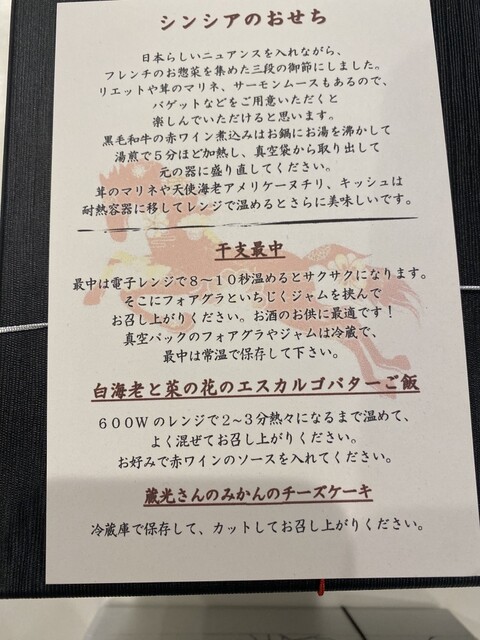 シンシアのおせち
日本らしいニュアンスを入れながら、
フレンチのお惣菜を集めた三段の御節にしました。
リエットや茸のマリネ、サーモンムースもあるので、
バゲットなどをご用意いただくと
楽しんでいただけると思います。
黒毛和牛の赤ワイン煮込みはお鍋にお湯を沸かして
湯煎で5分ほど加熱し、真空袋から取り出して
元の器に盛り直してください。
茸のマリネや天使海老アメリケーヌチリ、キッシュは
耐熱容器に移してレンジで温めるとさらに美味しいです。
干支最中
最中は電子レンジで8〜10秒温めるとサクサクになります。
そこにフォアグラといちじくジャムを挟んで
お召し上がりください。お酒のお供に最適です！
真空パックのフォアグラやジャムは冷蔵で、
最中は常温で保存して下さい。
白海老と菜の花のエスカルゴバターご飯
600Wのレンジで2〜3分熱々になるまで温めて、
よく混ぜてお召し上がりください。
お好みで赤ワインのソースを入れてください。
蔵光さんのみかんのチーズケーキ
冷蔵庫で保存して、カットしてお召し上がりください。